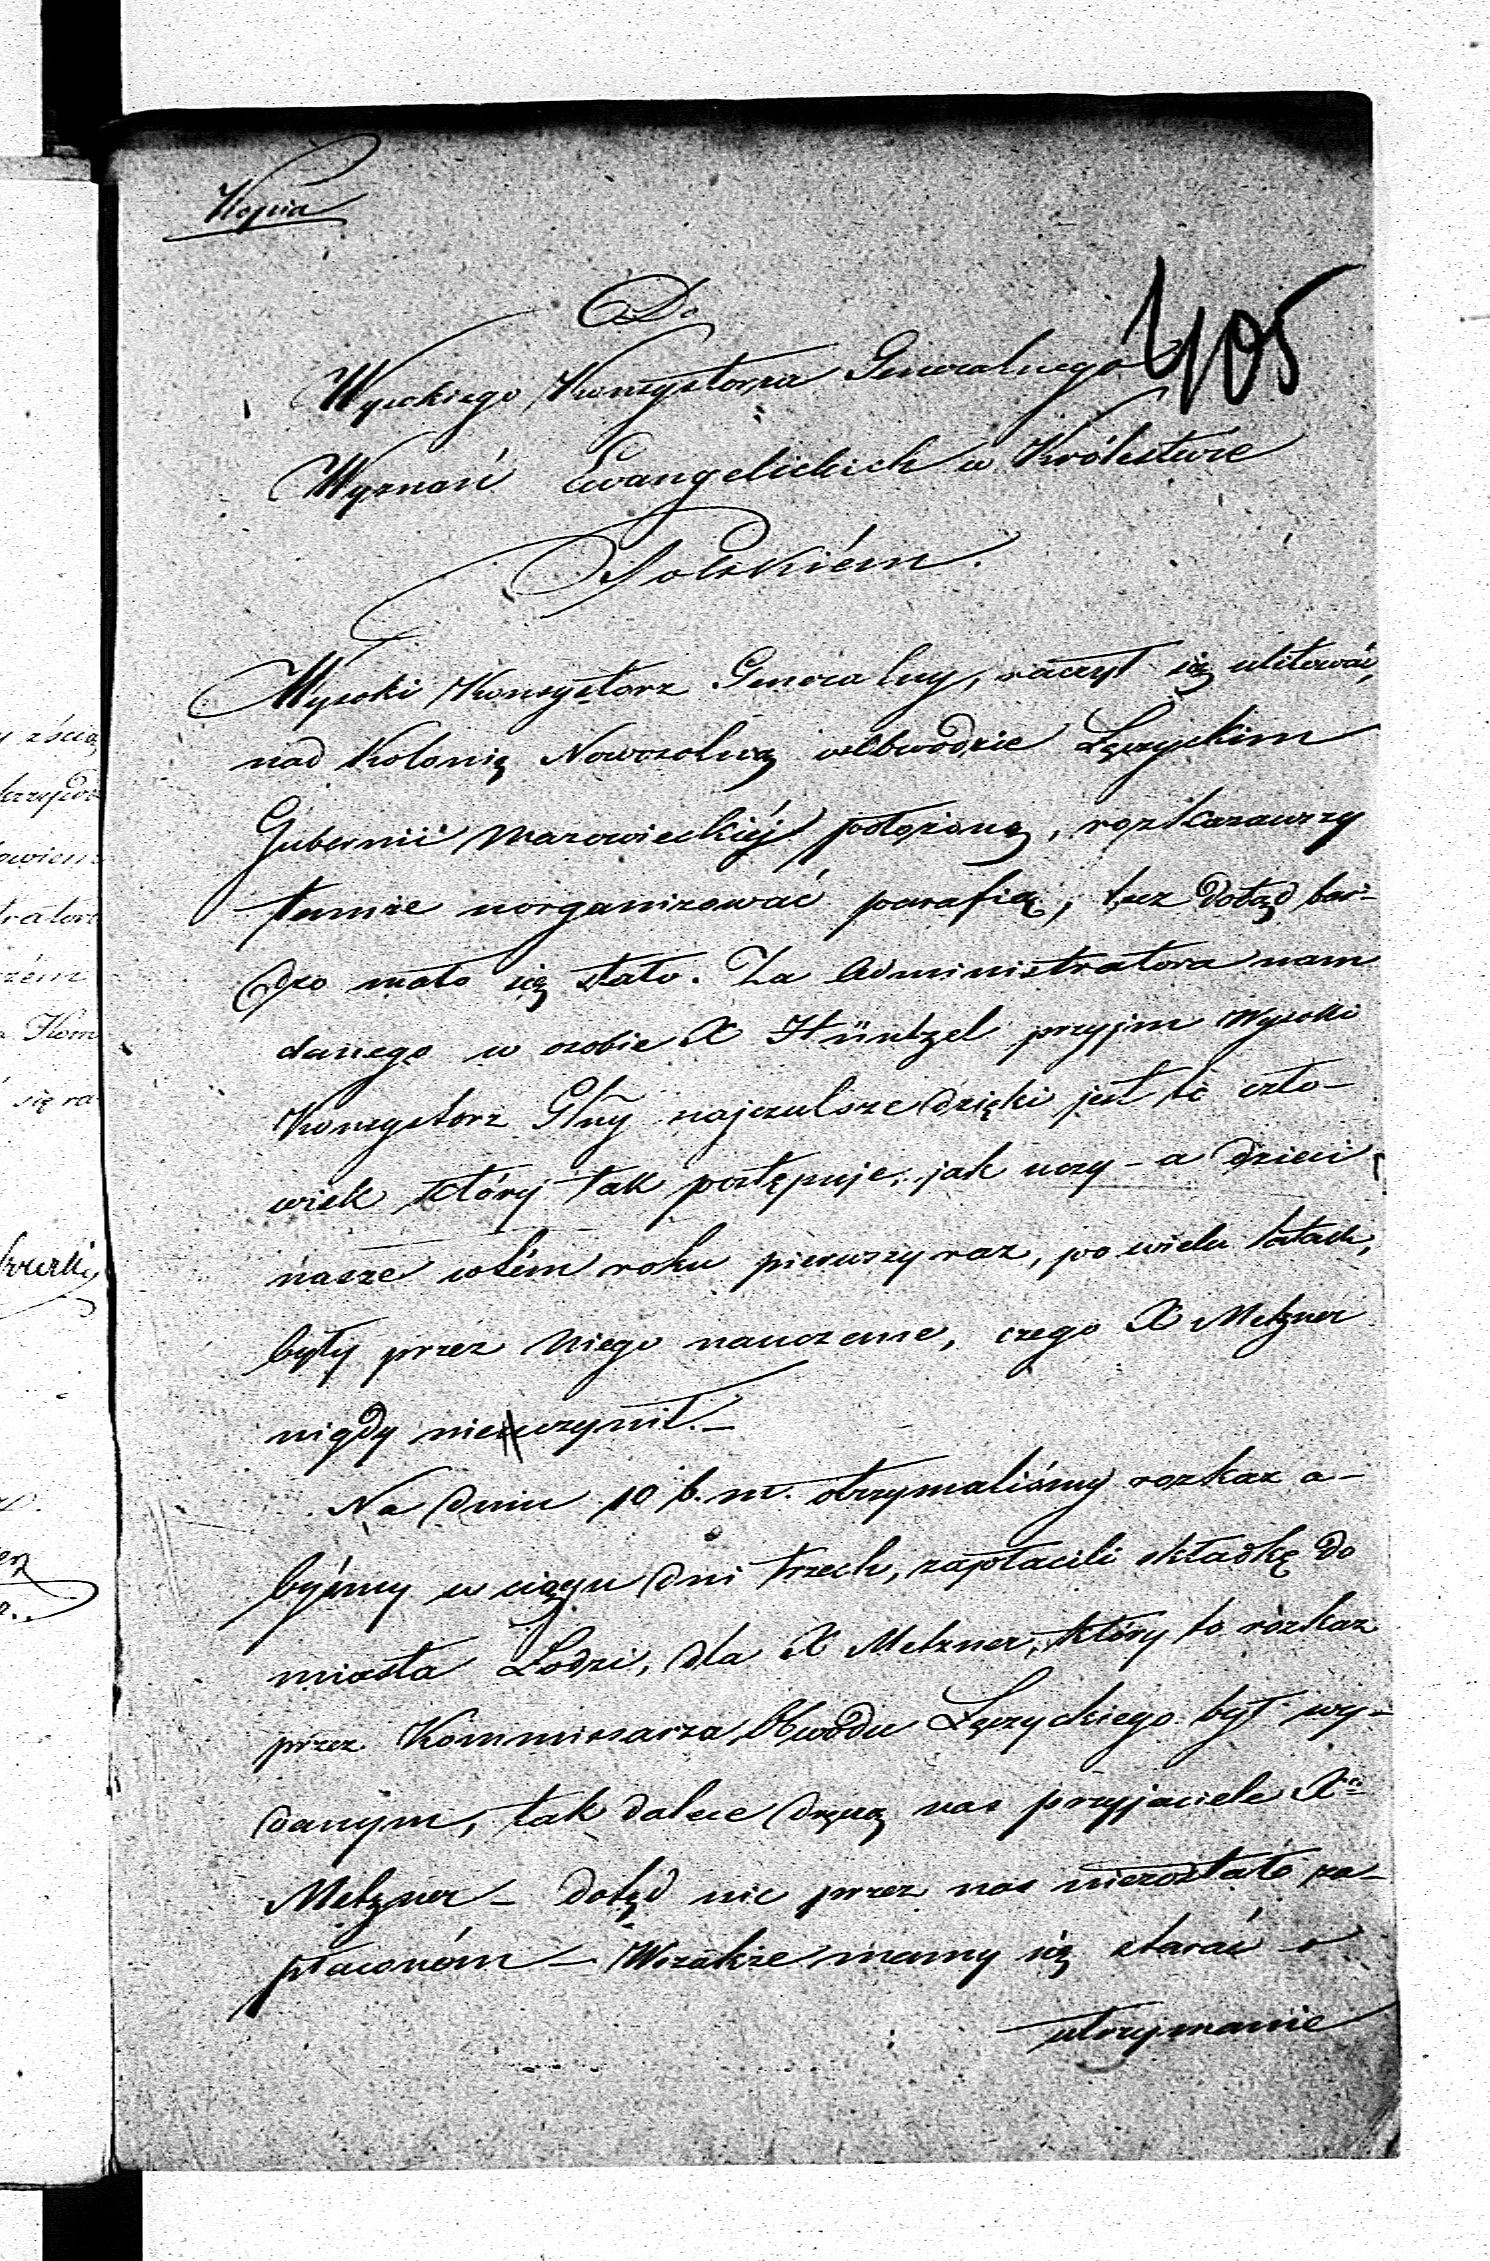 Kopia
405
Do
Wysokiego Konsystorza Generalnego
Wyznań Ewangelickich w Królestwie
Polskiém.
Wysoki Konsystorz Generalny, raczył się ulitować,
nad Kolonią Nowosolną w Obwodzie Łęczyckim
Gubernii Mazowieckiéj położoną, rozkazawszy
tamże uorganizować parafią, lecz dotąd bar-
dzo mało się stało. Za Administratora nam
danego w osobie X Hüntzel przyjm Wysoki
Konsystorz Glny najczulsze dzięki jest to czło-
wiek który tak postępuje, jak uczy - a dzieci
nasze w tém roku pierwszy raz, po wielu latach,
były przez niego nauczone, czego X Metzner
nigdy nieuczynił. -
Na dniu 10 b. m. otrzymaliśmy rozkaz a-
byśmy w ciągu dni trzech, zapłacili składkę do
miasta Łodzi, dla X Metzner, który to rozkaz
przez Kommissarza Obwodu Łęczyckiego był wy-
danym, tak dalece dręczą nas przyjaciele Xa
Metzner - dotąd nic przez nas niezostało za-
płaconém - Wszakże mamy się starać o
utrzymanie